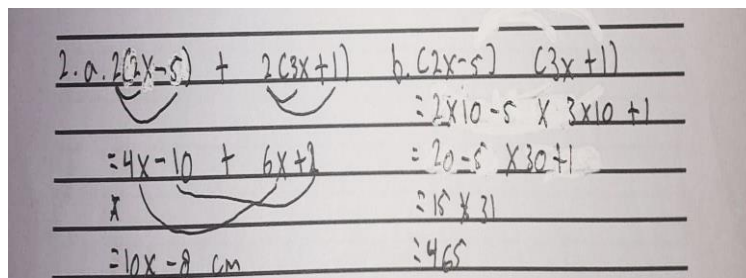 2. a. 2(2x-5) + 2(3x+1)
=4x-10 + 6x+2
=10x-8 cm
b. (2x-5) (3x+1)
=2x10-5 x 3x10+1
=20-5 x30+1
=15 x 31
=465